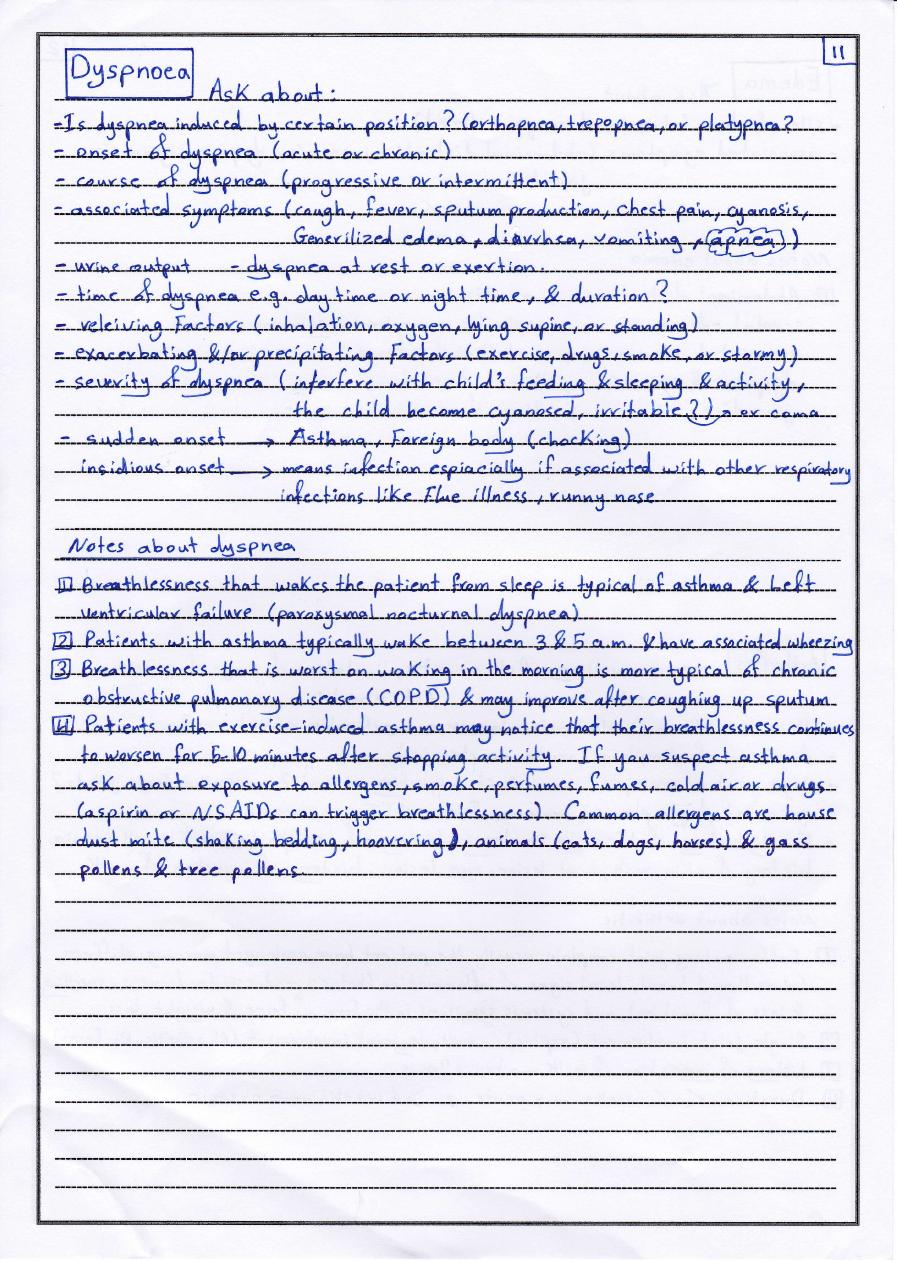 11
Dyspnoea
Ask about:
-Is dyspnea induced by certain position? (orthopnea, trepopnea, or platypnea?
- onset of dyspnea (acute or chronic)
- course of dyspnea (progressive or intermittent)
- associated symptoms (cough, fever, sputum production, chest pain, cyanosis,
Generilized edema, diarrhea, vomiting, apnea)
- urine output - dyspnea at rest or exertion.
- time of dyspnea e.g. day time or night time, & duration?
- releiving Factors (inhalation, oxygen, lying supine, or standing)
- exacerbating &/or precipitating Factors (exercise, drugs, smoke, or starmy)
- severity of dyspnea (interfere with child's feeding & sleeping & activity,
the child become cyanosed, irritable?), or coma
- sudden onset → Asthma, Foreign body (chocking)
insidious onset → means infection espiacially if associated with other respiratory
infections like Flue illness, runny nose
Notes about dyspnea
1 Breathlessness that wakes the patient from sleep is typical of asthma & left
ventricular failure (paroxysmal nocturnal dyspnea)
2 Patients with asthma typically wake between 3 & 5 a.m. & have associated wheezing
3 Breathlessness that is worst on waking in the morning is more typical of chronic
obstructive pulmonary disease (COPD) & may improve after coughing up sputum
4 Patients with exercise-induced asthma may notice that their breathlessness continues
to worsen for 5-10 minutes after stopping activity. If you suspect asthma
ask about exposure to allergens, smoke, perfumes, fumes, cold air or drugs
(aspirin or NSAIDs can trigger breathlessness). Common allergens are house
dust mite (shaking bedding, hoovering), animals (cats, dogs, horses) & gass
pollens & tree pollens.